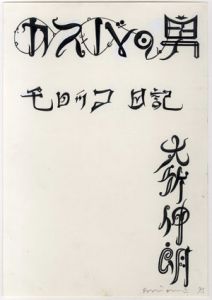 カスバの男
モロッコ 日記
大竹伸朗